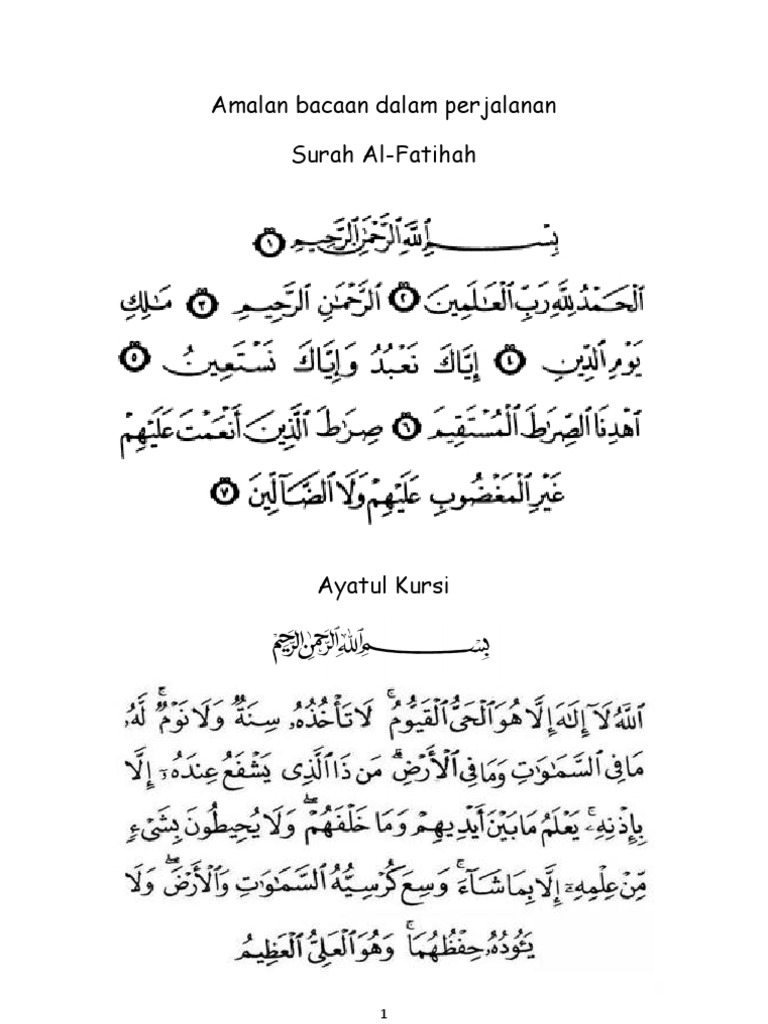 Amalan bacaan dalam perjalanan
Surah Al-Fatihah
بِسْمِ ٱللَّهِ ٱلرَّحْمَٰنِ ٱلرَّحِيمِ ١
ٱلْحَمْدُ لِلَّهِ رَبِّ ٱلْعَٰلَمِينَ ٢ ٱلرَّحْمَٰنِ ٱلرَّحِيمِ ٣ مَٰلِكِ
يَوْمِ ٱلدِّينِ ٤ إِيَّاكَ نَعْبُدُ وَإِيَّاكَ نَسْتَعِينُ ٥
ٱهْدِنَا ٱلصِّرَٰطَ ٱلْمُسْتَقِيمَ ٦ صِرَٰطَ ٱلَّذِينَ أَنْعَمْتَ عَلَيْهِمْ
غَيْرِ ٱلْمَغْضُوبِ عَلَيْهِمْ وَلَا ٱلضَّآلِّينَ ٧
Ayatul Kursi
بِسْمِ ٱللَّهِ ٱلرَّحْمَٰنِ ٱلرَّحِيمِ
ٱللَّهُ لَآ إِلَٰهَ إِلَّا هُوَ ٱلْحَىُّ ٱلْقَيُّومُ ۚ لَا تَأْخُذُهُۥ سِنَةٌ وَلَا نَوْمٌ ۚ لَّهُۥ
مَا فِى ٱلسَّمَٰوَٰتِ وَمَا فِى ٱلْأَرْضِ ۗ مَن ذَا ٱلَّذِى يَشْفَعُ عِندَهُۥٓ إِلَّا
بِإِذْنِهِۦ ۚ يَعْلَمُ مَا بَيْنَ أَيْدِيهِمْ وَمَا خَلْفَهُمْ ۖ وَلَا يُحِيطُونَ بِشَىْءٍ
مِّنْ عِلْمِهِۦٓ إِلَّا بِمَا شَآءَ ۚ وَسِعَ كُرْسِيُّهُ ٱلسَّمَٰوَٰتِ وَٱلْأَرْضَ ۖ وَلَا
يَـُٔودُهُۥ حِفْظُهُمَا ۚ وَهُوَ ٱلْعَلِىُّ ٱلْعَظِيمُ
1